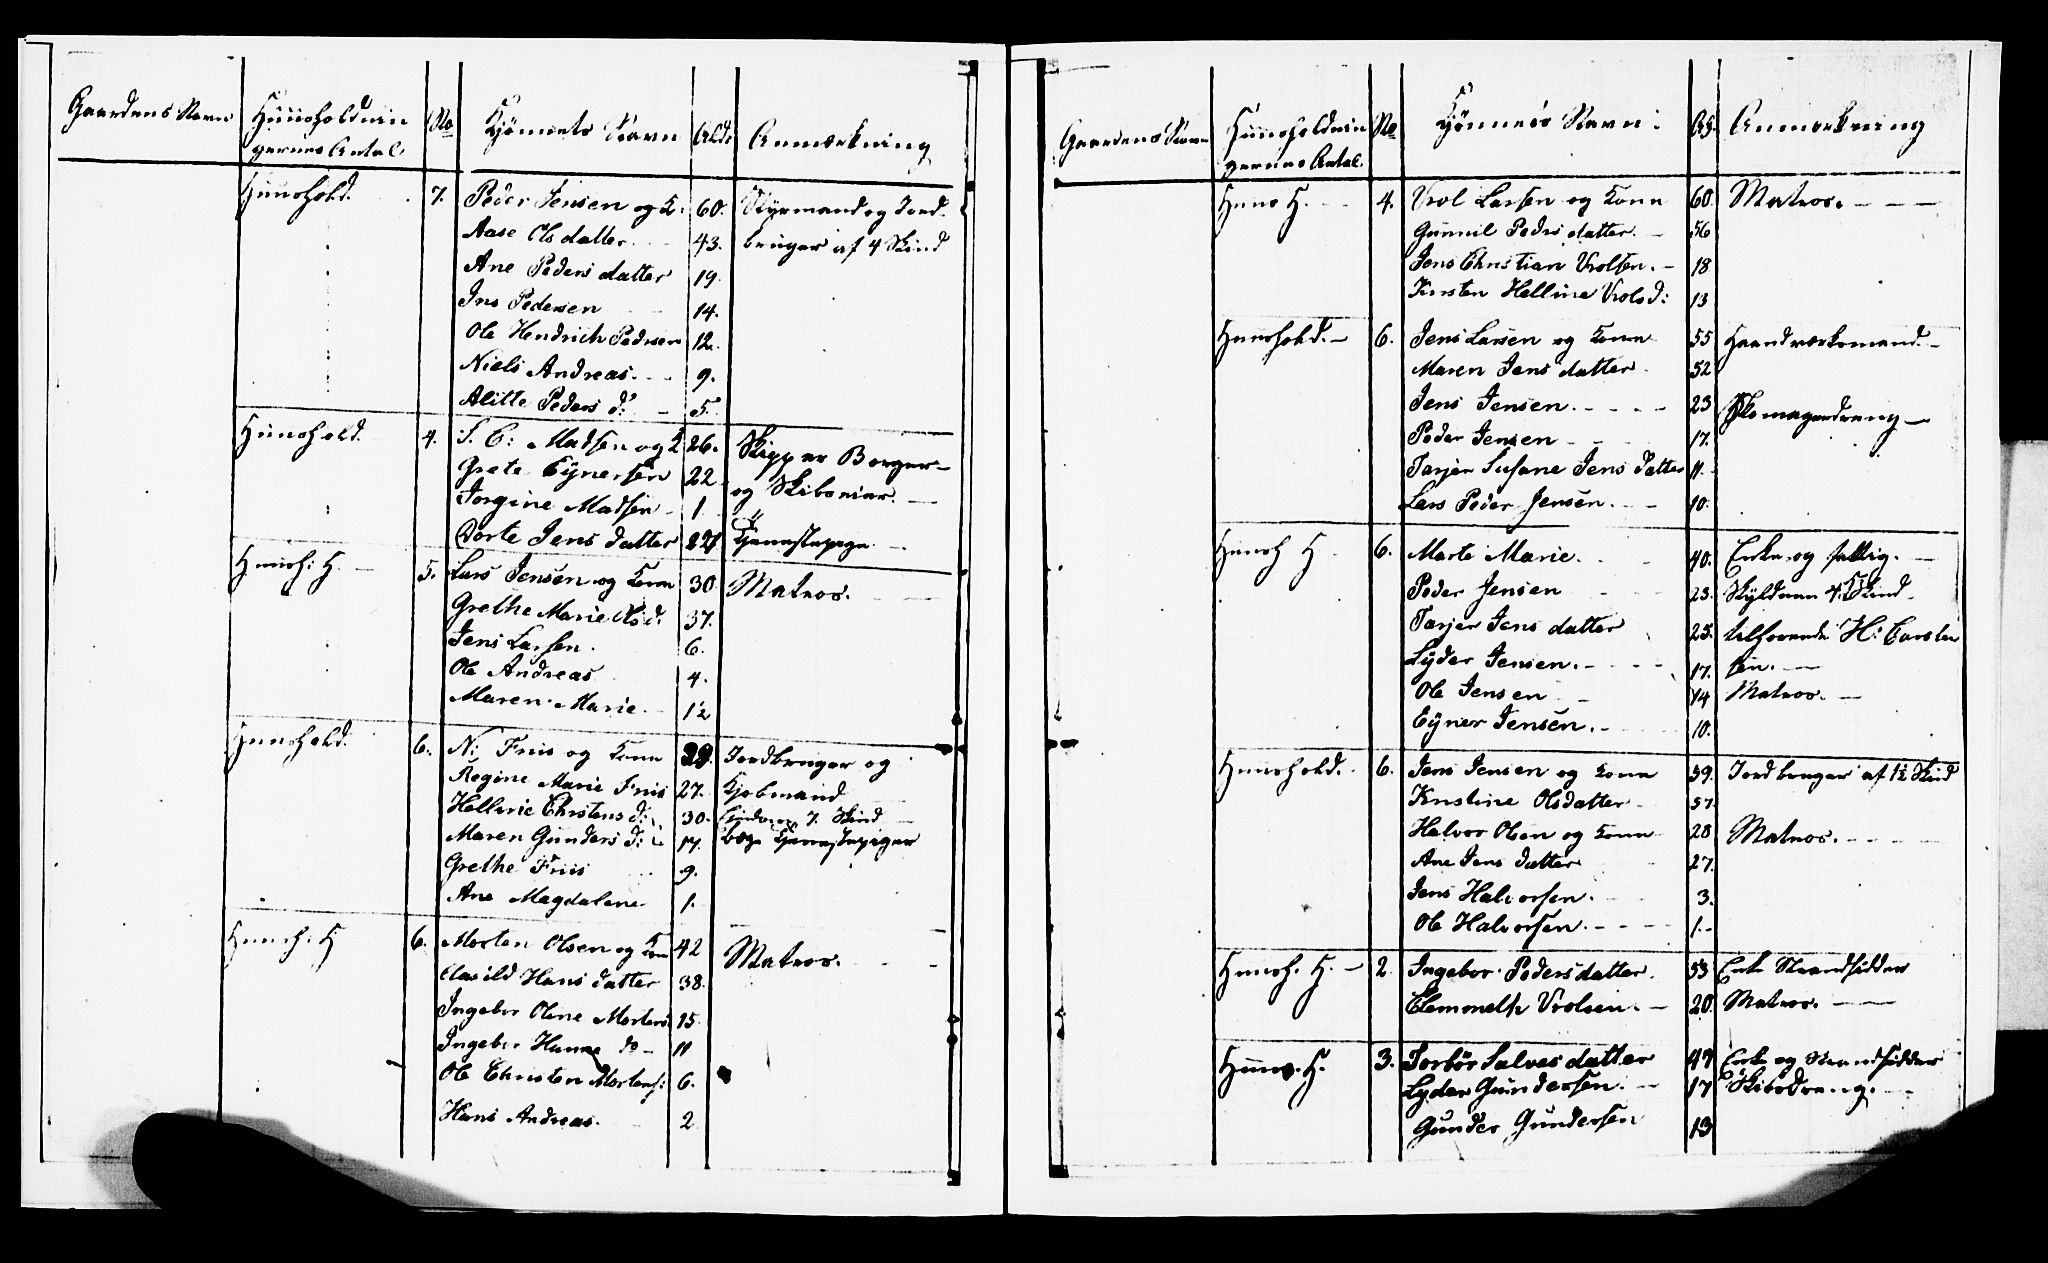 Gaardens Navn Huusholdnin No Kjönnets Navn Ald: Anmærkning
gernes Antal.
Huushold. 7. Peder Jensen og K. 60. Styrmand og Jord-
Aase Olsdatter. 43. bruger af 4 Skind
Ane Pedersdatter 19.
Jns Pedersen 14.
Ole Hendrich Pedersen 12.
Niels Andreas. 9.
Alitte Peders d: 5.
Huushold. 4. S. C: Madsen og K 26. Skipper Borger
Grete Eynersen 22 og Skibeniar.
Jorgine Madsen 1
Dorte Jensdatter 22 Tjenestepige
Huush: H. 5. Lars Jensen og Kone 30 Matros.
Grethe Marie Olsd: 37.
Jens Larsen. 6.
Ole Andreas 4.
Maren Marie 1½
Huushold. 6. N: Friis og Kone 39. Jordbruger og
Regine Marie Friis 27. Kjobmand
Hellvrie Chrstens d: 30. 7. Skind
Maren Gunders d: 17. Tjenestepiger
Grethe Friis 9.
Ane Magdalene 1.
Huush: H 6. Morten Olsen og Kone 42 Matros.
Aasild Hansdatter 38.
Ingebor Oline Mortens 15
Ingebor Hanne do 11
Ole Christen Mortens: 6.
Hans Andreas. 2
Gaardens Navn Huusholdnin No Kjönnets Navn: Al. Anmerkning
gernes Antal.
Huus H. 4. Vrol Larsen og Kone 60 Matros.
Gunnil Pedersdatter. 56
Jens Christian Vrolsen. 18
Kirsten Helline Vrols d: 13
Huushold. 6. Jens Larsen og Kone 55 Haandværksmand.
Maren Jensdatter 52
Jens Jensen. 23 Skomagerdreng
Peder Jensen 17.
Tarjer Susane Jens Datter 11.
Lars Peder Jensen. 10.
Huush H. 6. Marte Marie. 40. Enke og fattig.
Peder Jensen 23. Skyldean 4. Skind
Tarjer Jensdatter 25. tilhorende H: Carsten
Lyder Jensen. 17. sen.
Ole Jensen 14 Matros.
Eyner Jensen. 10.
Huushold. 6. Jens Jensen og Kone 59. Jordbruger af 1½ Skind
Kristine Olsdatter 57.
Halvor Olsen og Kone 28 Matros.
Ane Jens datter 27.
Jens Halvorsen. 3.
Ole Halvorsen. 1.
Huush. H. 2. Ingebor Pedersdatter. 53 Enke Strandsidder
Clemmelh Vrolsen. 20. Matros.
Huus. H. 3. Torbör Salvesdatter 47 Enke og Strandsidder
Lyder Gundersen. 17 Skibsdreng.
Gunder Gundersen 13